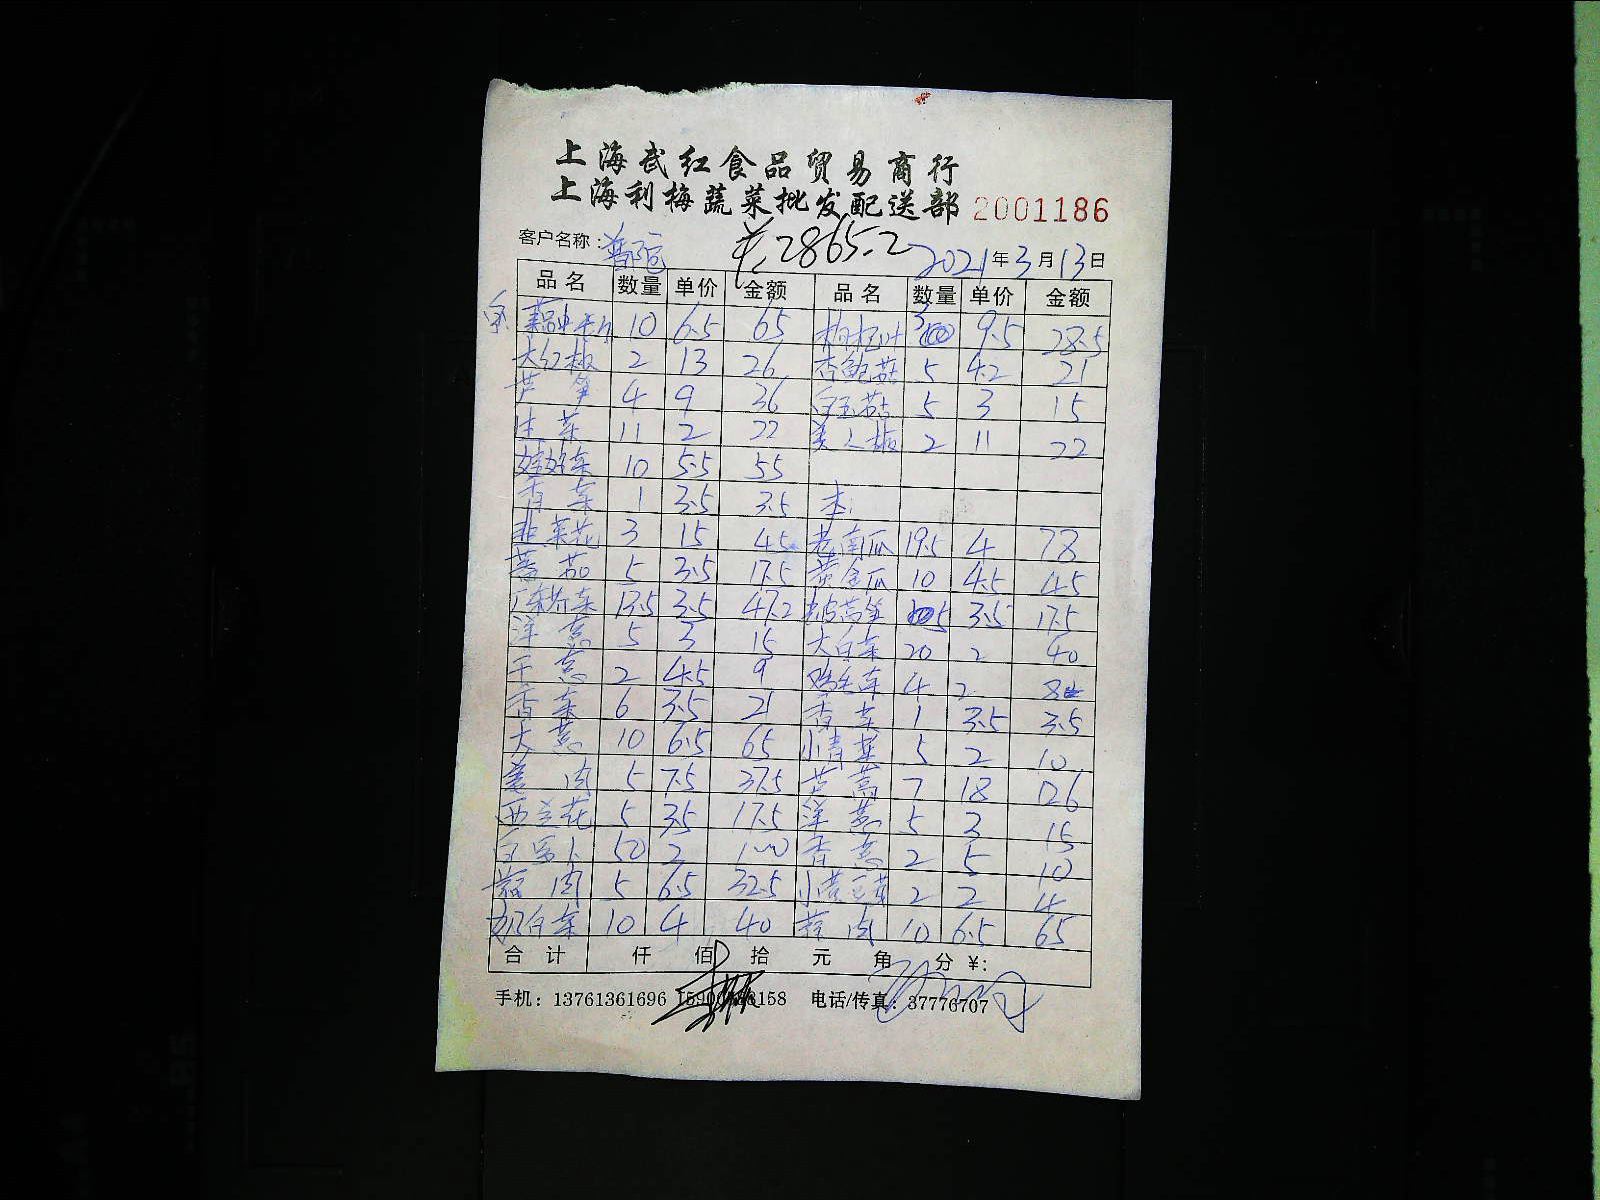 上海武红食品贸易商行
上海利梅蔬菜批发配送部 2001186
客户名称: 2865.2 2021年3月13日
品名 数量 单价 金额 品名 数量 单价 金额
10 6.5 65 9.5 28.5
大红椒 2 13 26 杏鲍菇 5 4.2 21
芦笋 4 9 36 白玉菇 5 3 15
生菜 11 2 22 美人椒 2 11 22
娃娃菜 10 5.5 55
香菜 1 3.5 3.5 本:
韭菜花 3 15 45 老南瓜 19.5 4 78
蕃茄 5 3.5 17.5 黄金瓜 10 4.5 45
13.5 3.5 47.2 5 3.5 17.5
洋葱 5 3 15 大白菜 20 2 40
干葱 2 4.5 9 鸡毛菜 4 2 8
香菜 6 3.5 21 香菜 1 3.5 3.5
大葱 10 6.5 65 小青菜 5 2 10
姜肉 5 7.5 37.5 芦蒿 7 18 126
西兰花 5 3.5 17.5 洋葱 5 3 15
白萝卜 50 2 100 香葱 2 5 10
蒜肉 5 6.5 32.5 小黄豆芽 2 2 4
加白菜 10 4 40 蒜肉 10 6.5 65
合计 仟 佰 拾 元 角 分 ¥:
手机: 13761361696 电话/传真: 37776707